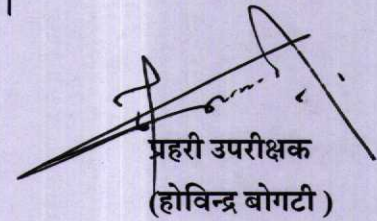 प्रहरी उपरीक्षक
(होविन्द्र बोगटी )